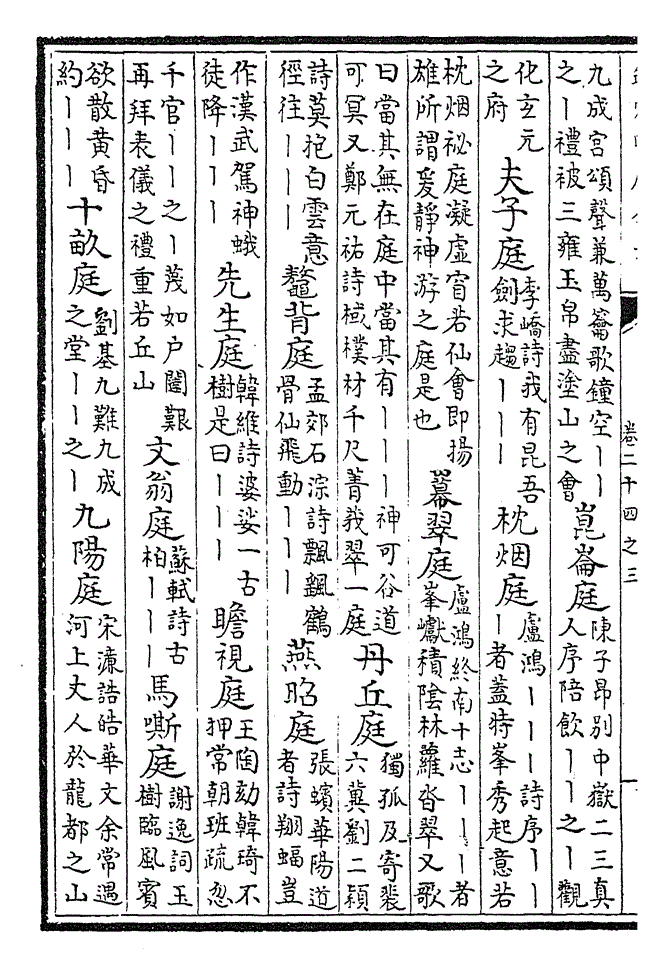 卷二十四之三
九成宮頌聲兼萬籥歌鐘空丨丨之丨禮被三雍玉帛盡塗山之會 崑崙庭 陳子昂別中嶽二三真人序陪飲丨丨之丨觀
化玄元之府 夫子庭 李嶠詩我有昆吾劍求趨丨丨丨 枕烟庭 盧鴻丨丨丨詩序丨丨丨者蓋特峯秀起意若
枕烟祕庭凝虛窅若仙會即揚雄所謂爰靜神游之庭是也 羃翠庭 盧鴻終南十志丨丨丨者峯巘積陰林蘿沓翠又歌
曰當其無在庭中當其有丨丨丨神可谷道可冥又鄭元祐詩棫樸材千尺菁莪翠一庭 丹丘庭 獨孤及寄裴六冀劉二頴
詩莫抱白雲意徑往丨丨丨 鼇背庭 孟郊石淙詩飄飄鶴骨仙飛動丨丨丨 燕昭庭 張蠙華陽道者詩翔蝠豈
作漢武駕神蛾徒降丨丨丨 先生庭 韓維詩婆娑一古樹是曰丨丨丨 瞻視庭 王陶劾韓琦不押常朝班疏忽
千官丨丨之丨蔑如户闥艱再拜表儀之禮重若丘山 文翁庭 蘇軾詩古柏丨丨丨 馬嘶庭 謝逸詞玉樹臨風賓
欲散黄昏約丨丨丨 十畝庭 劉基九難九成之堂丨丨之丨 九陽庭 宋濂誥皓華文余常遇河上丈人於龍都之山